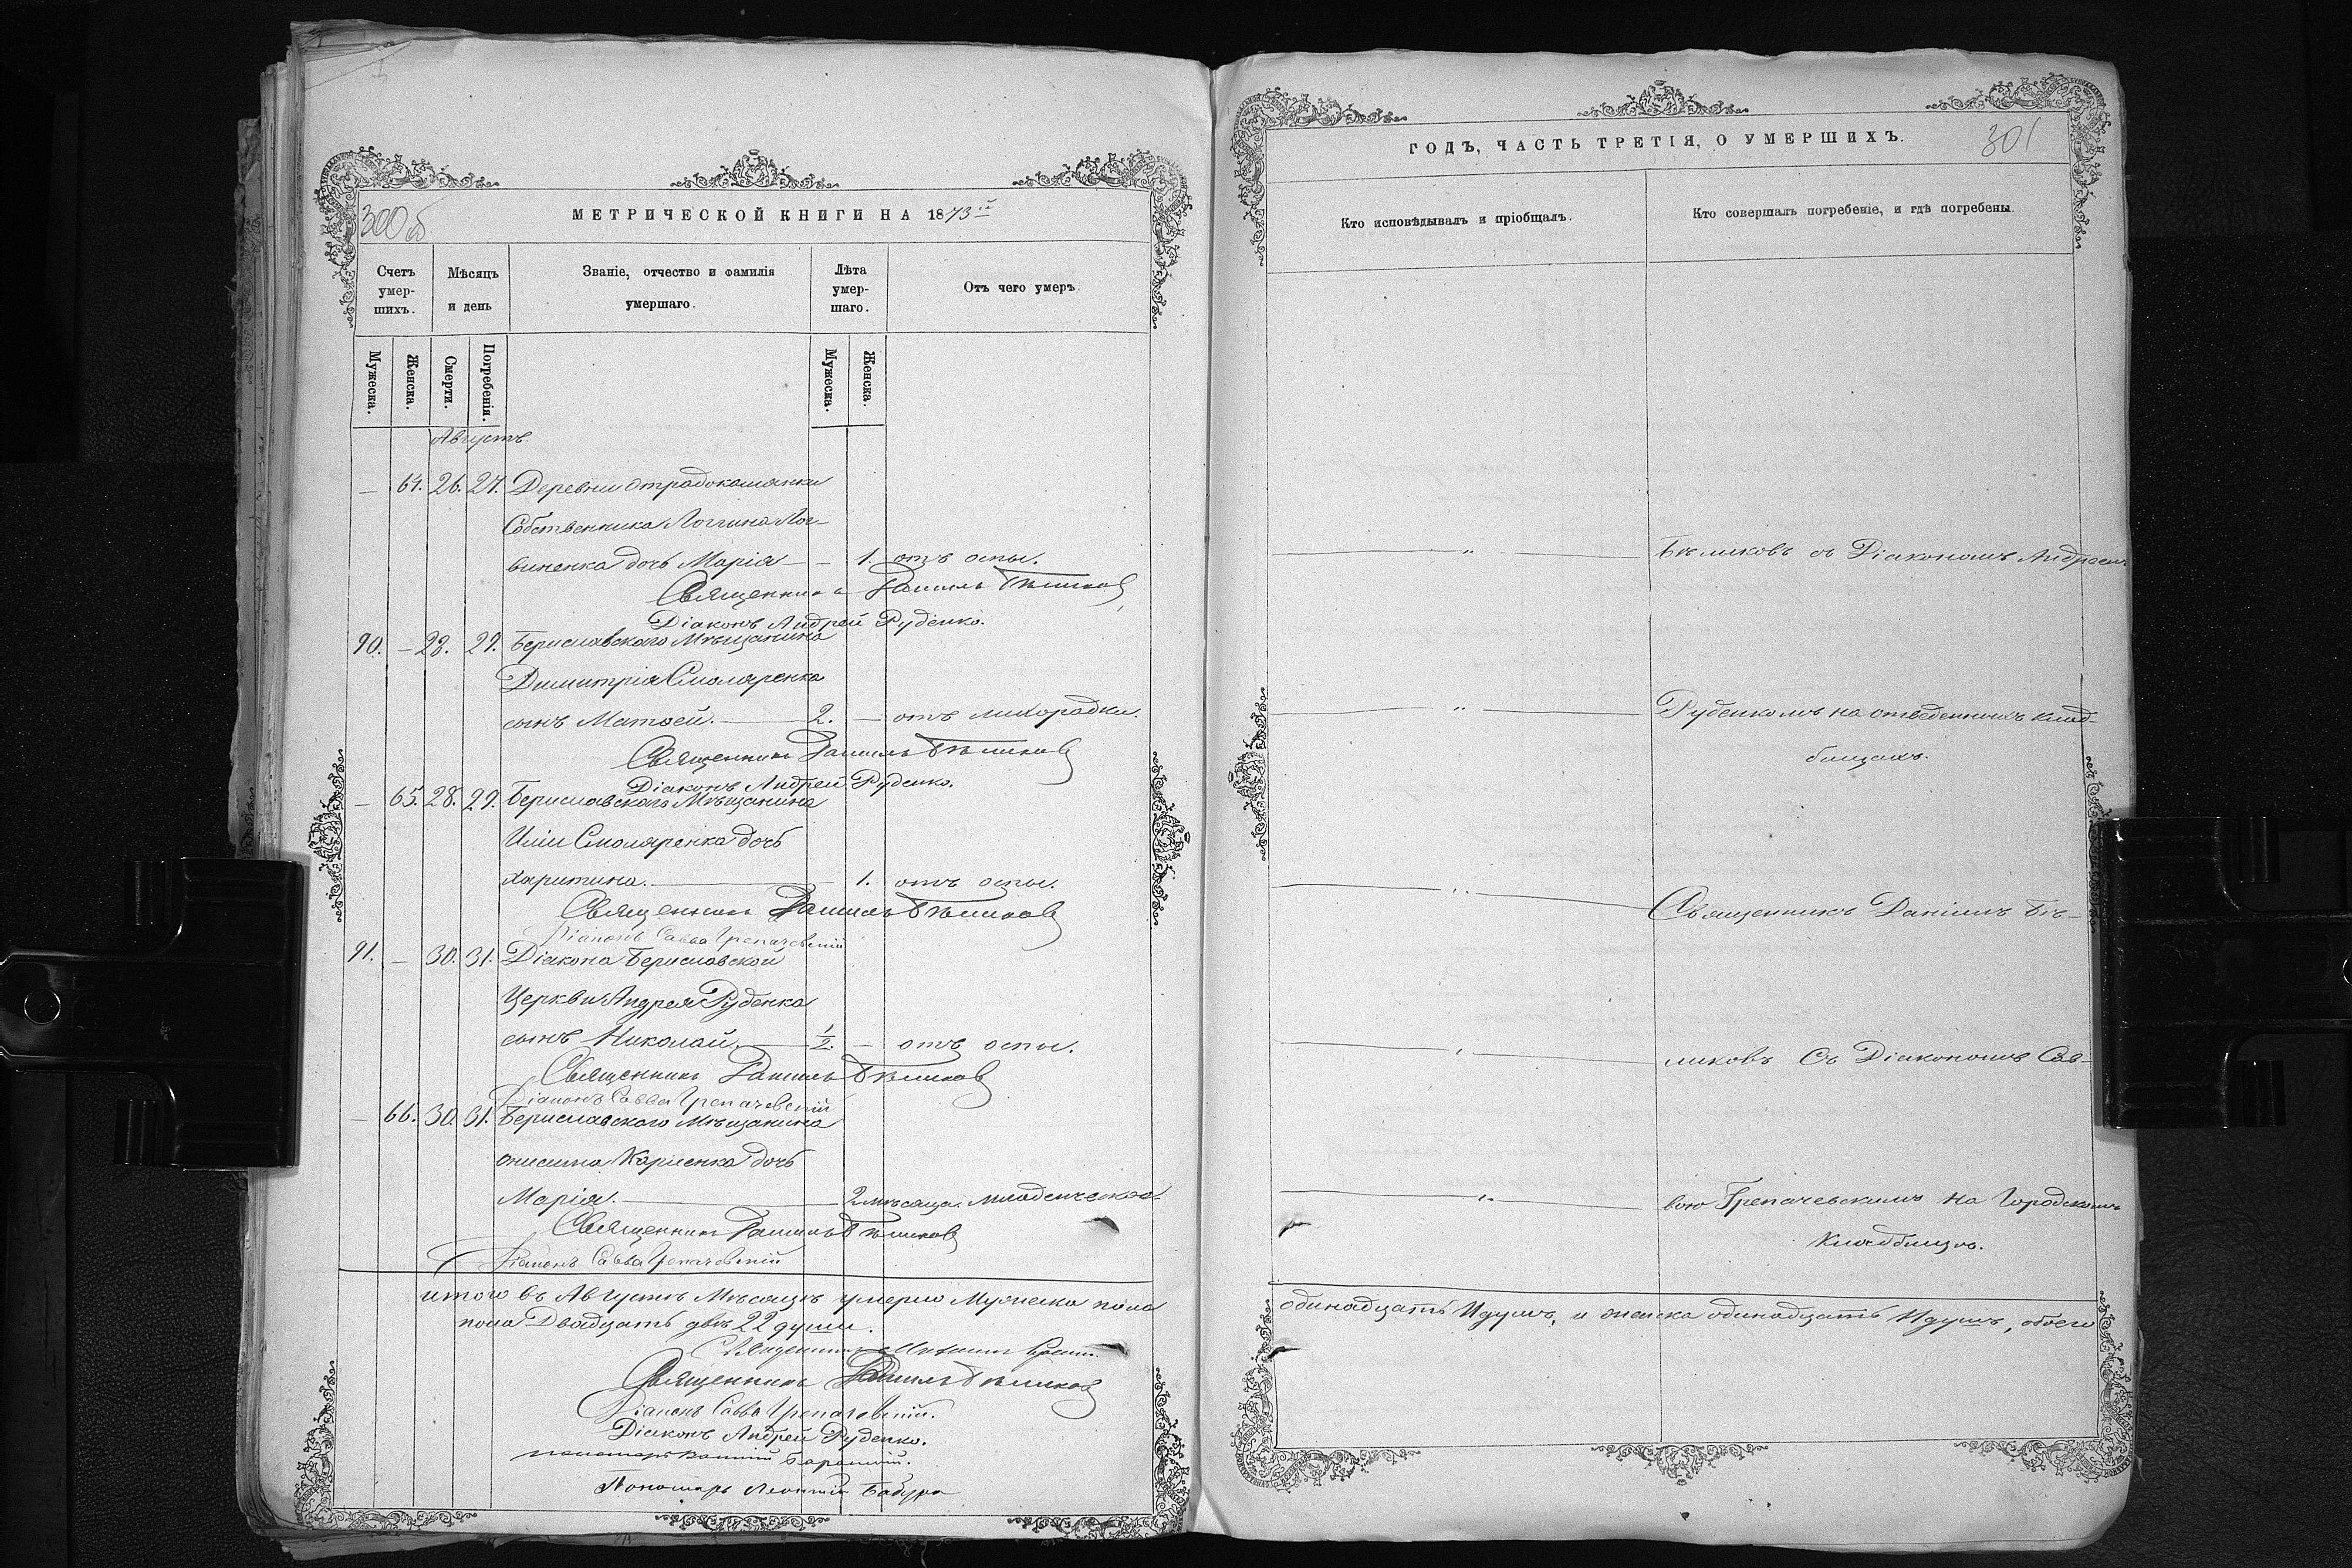 300об
МЕТРИЧЕСКОЙ КНИГИ НА 1873й
Счетъ умер-шихъ.
Мѣсяцъ и день
Званіе, отчество и фамилія умершаго.
Лѣта умер-шаго.
Отъ чего умеръ.
Мужеска.
Женска.
Смерти.
Погребенія.
Мужеска.
Женска.
Августъ.
— 64. 26. 27. Деревни Отрадокаменки
Собственника Логгина Лог-
виненка дочь Марія — — 1. отъ оспы.
Священникъ Даніилъ Бѣликов
Діаконъ Андрей Руденко.
90. — 28. 29. Бериславского Мѣщанина
Димитрія Смоляренка
сынъ Матѳей. — 2. — отъ лихорадки.
Священникъ Даніилъ Бѣликов
Діаконъ Андрей Руденко.
— 65. 28. 29. Бериславского Мѣщанина
Иліи Смоляренка дочь
Харитина. — 1. отъ оспы.
Священникъ Даніилъ Бѣликов
Діаконъ Савва Грепачевскій
91. — 30. 31. Діакона Бериславской
Церкви Андрея Руденка
сынъ Николай. — 1/2. — отъ оспы.
Священникъ Даніилъ Бѣликов
Діаконъ Савва Грепачевскій
— 66. 30. 31. Бериславского Мѣщанина
Онисима Карпенка дочь
Марія. — 2 мѣсяца. младенческой.
Священникъ Даніилъ Бѣликов
Діаконъ Савва Грепачевскій
итого въ Августѣ Мѣсяцѣ умерло Мужеска пола
пола Двадцать двѣ 22 души.
Священникъ
Священникъ Даніилъ Бѣликов
Діаконъ Савва Грепачевскій.
Діаконъ Андрей Руденко.
пономарь
Пономарь Леонтій Бабура
ГОДЪ, ЧАСТЬ ТРЕТІЯ, О УМЕРШИХЪ.
301
Кто исповѣдывалъ и пріобщалъ.
Кто совершалъ погребеніе, и гдѣ погребены.
— " — Бѣликовъ съ Діакономъ Андреемъ
— " — Руденкомъ на отведенныхъ клад-
бищахъ.
— " — Священникъ Даніилъ Бѣ-
— " — ликовъ Съ Діакономъ Сав-
— " — вою Грепачевскимъ на Городскомъ
Кладбищѣ.
одинадцать 11 душъ, и женска одинадцать 11 душъ, обоего